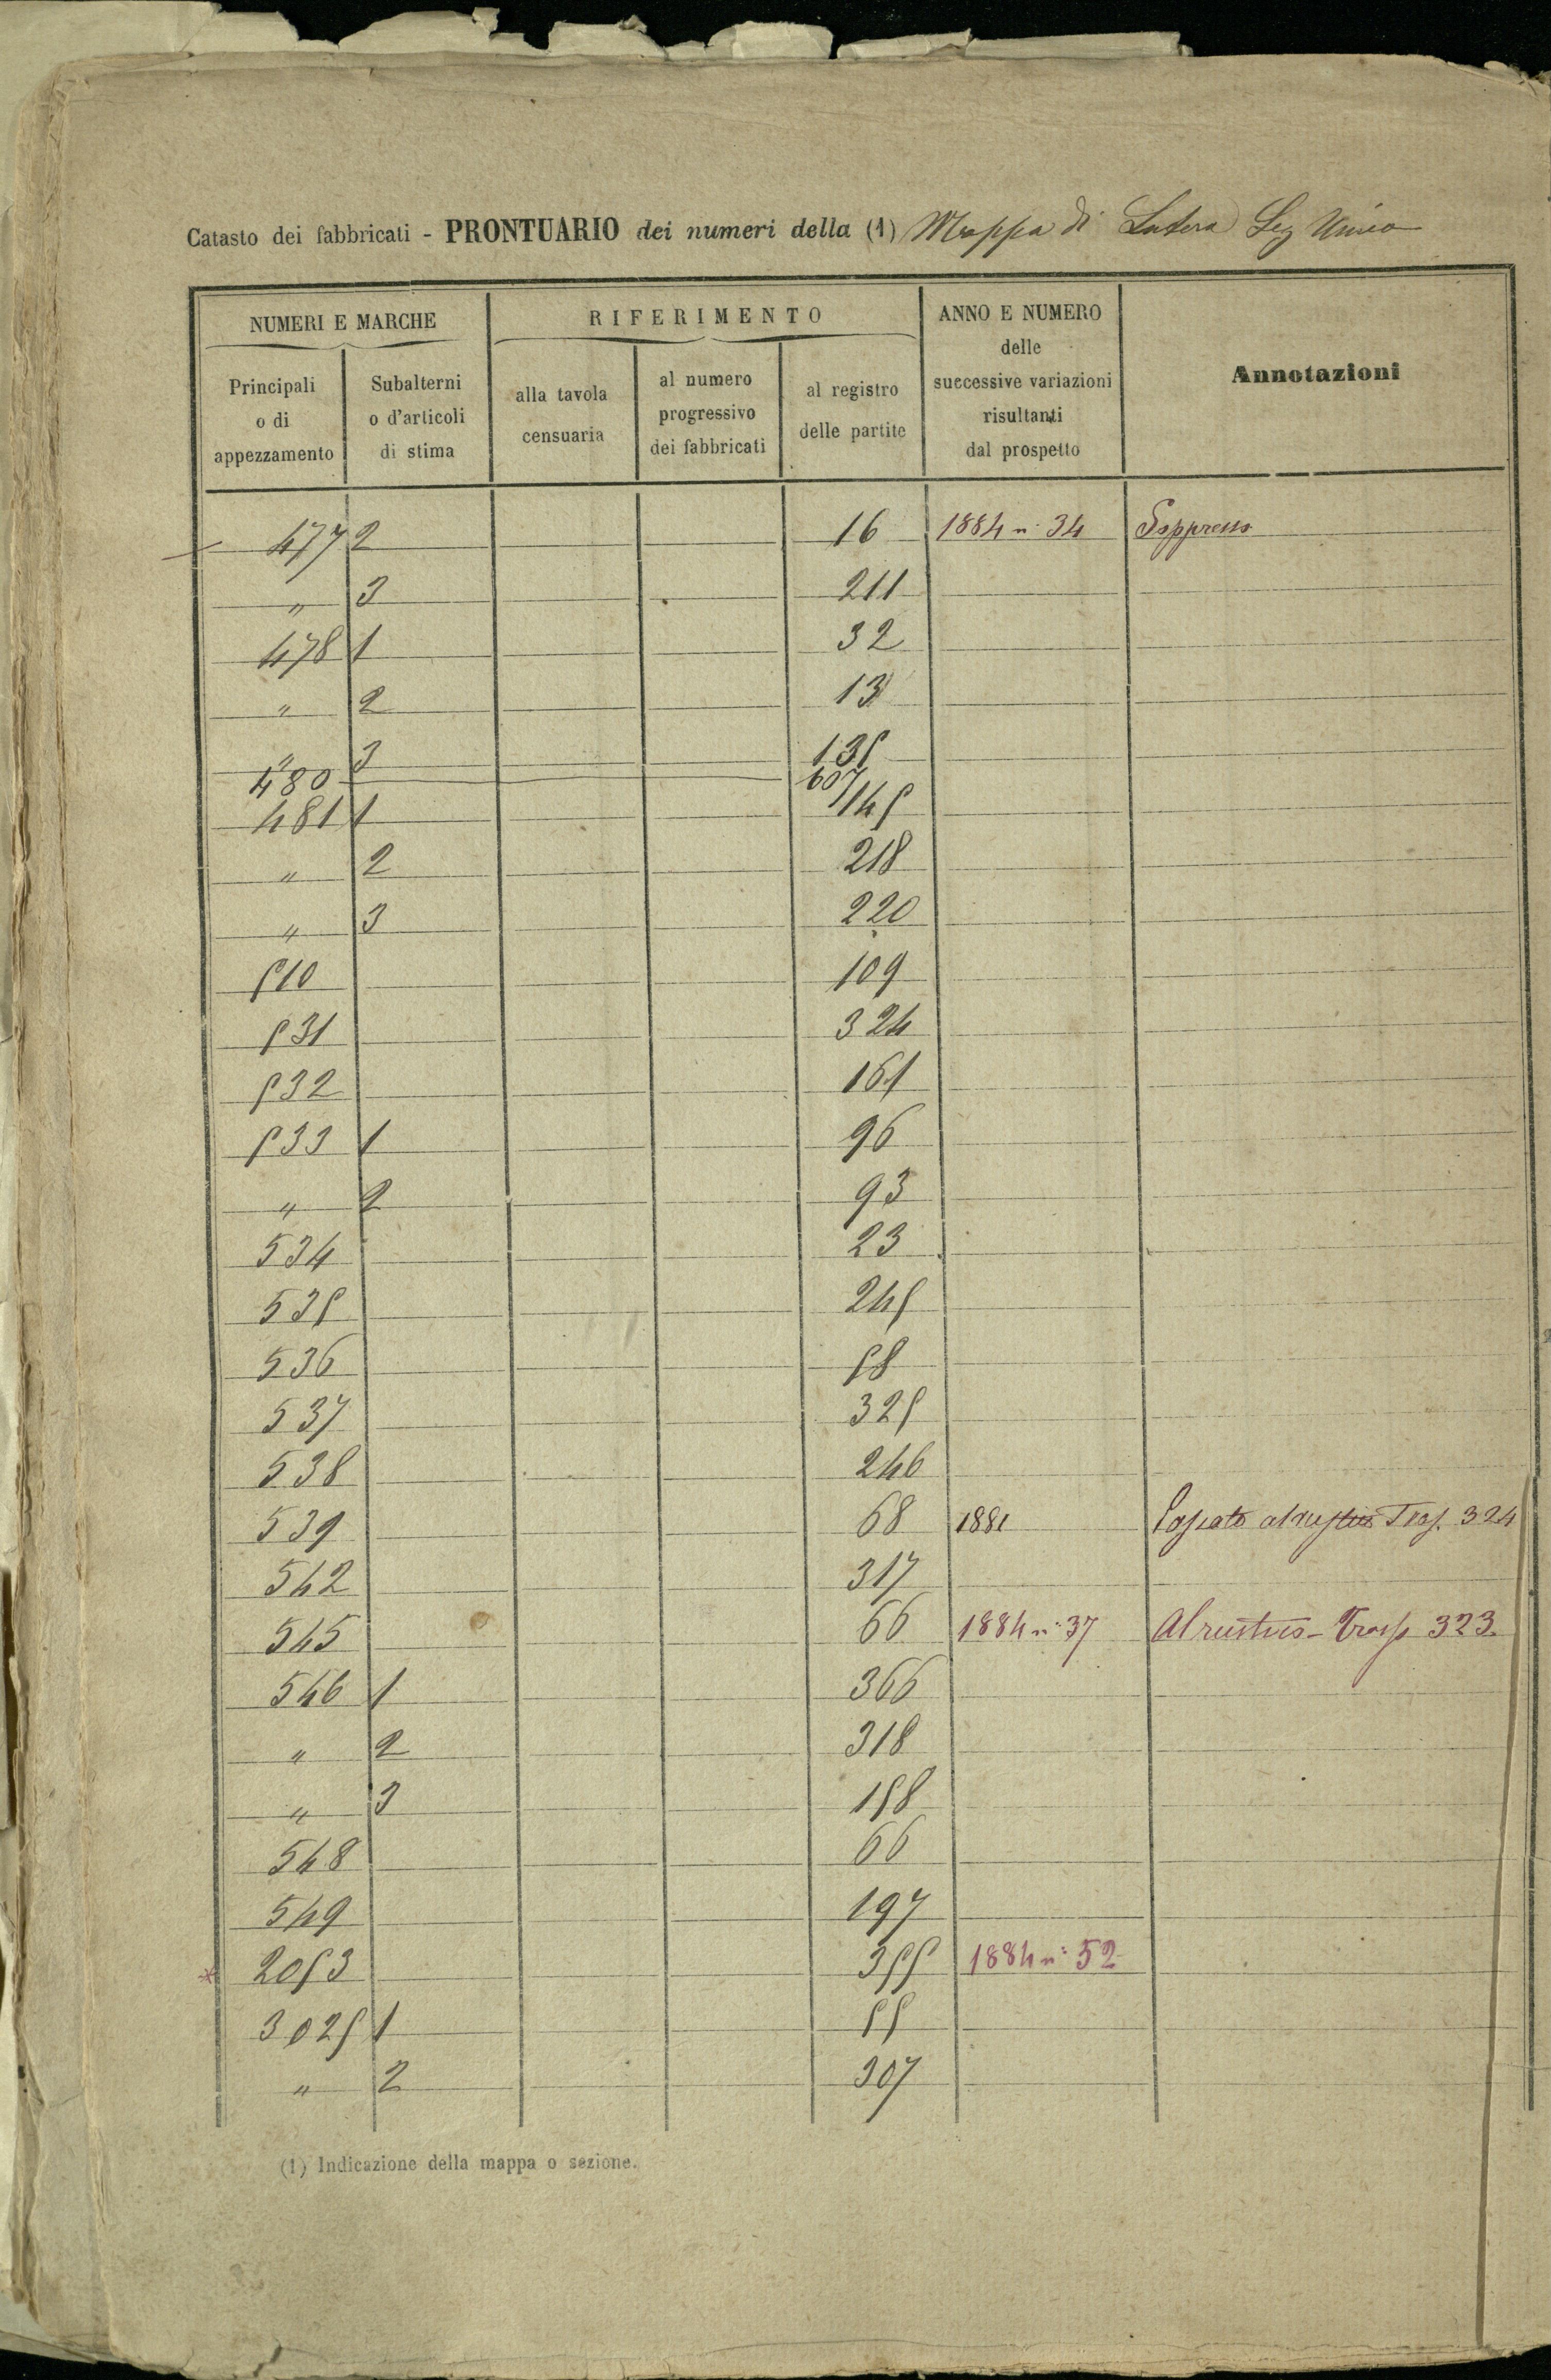 Catasto dei fabbricati - PRONTUARIO dei numeri della (1) Mappa di Latera Sez Unica
NUMERI E MARCHE
RIFERIMENTO
ANNO E NUMERO
delle
successive variazioni
risultanti
dal prospetto
Annotazioni
Principali
o di
appezzamento
Subalterni
o d'articoli
di stima
alla tavola
censuaria
al numero
progressivo
dei fabbricati
al registro
delle partite
477 2 16 1884 n. 34 Soppresso
" 3 211
478 1 32
" 2 13
" 3 135
480 607
481 1 145
" 2 218
" 3 220
510 109
531 324
532 161
533 1 96
" 2 93
534 23
535 245
536 58
537 325
538 246
539 68 1881 Passato al rustico Trasp. 324
542 317
545 66 1884 n. 37 Al rustico - Trasp 323
546 1 366
" 2 318
" 3 158
548 66
549 197
* 2053 355 1884 n. 52
3025 1 55
" 2 307
(1) Indicazione della mappa o sezione.